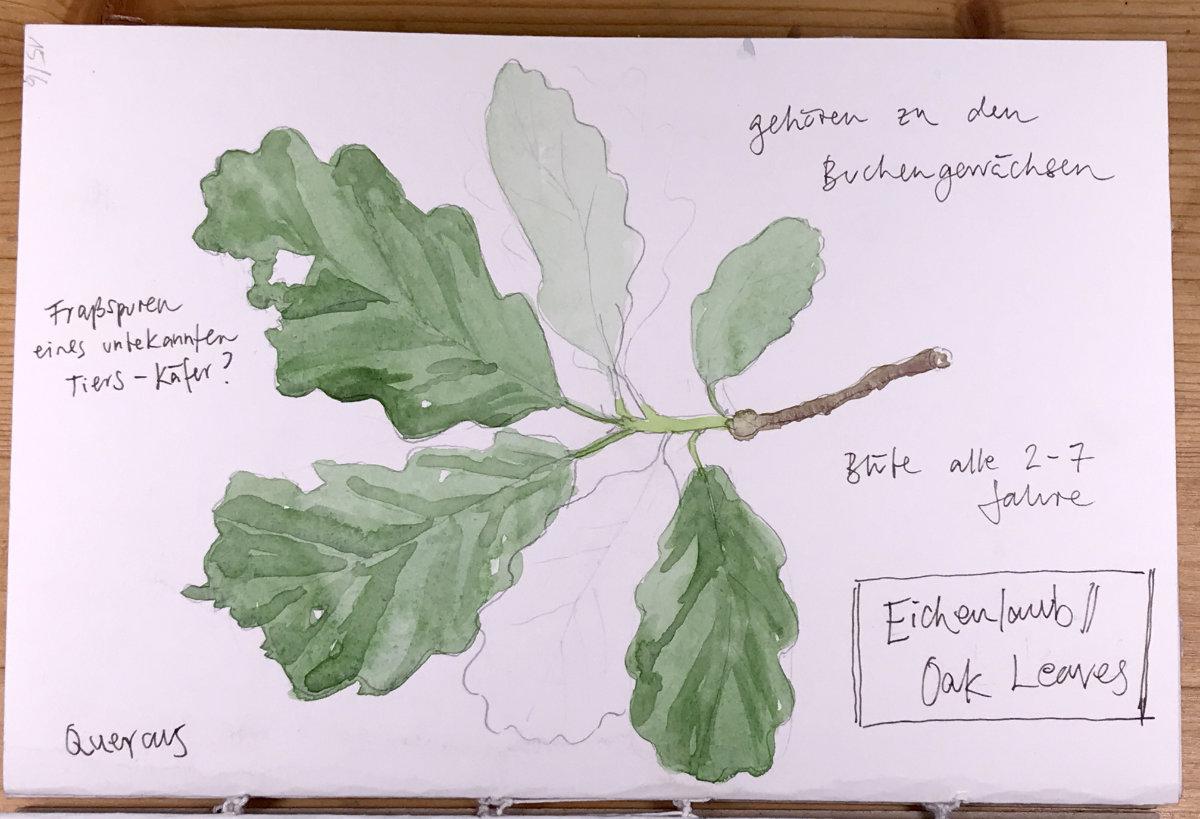 15/6
gehören zu den
Buchengewächsen
Fraßspuren
eines unbekannten
Tiers - Käfer?
Blüte alle 2-7
Jahre
Eichenlaub //
Oak Leaves
Quercus